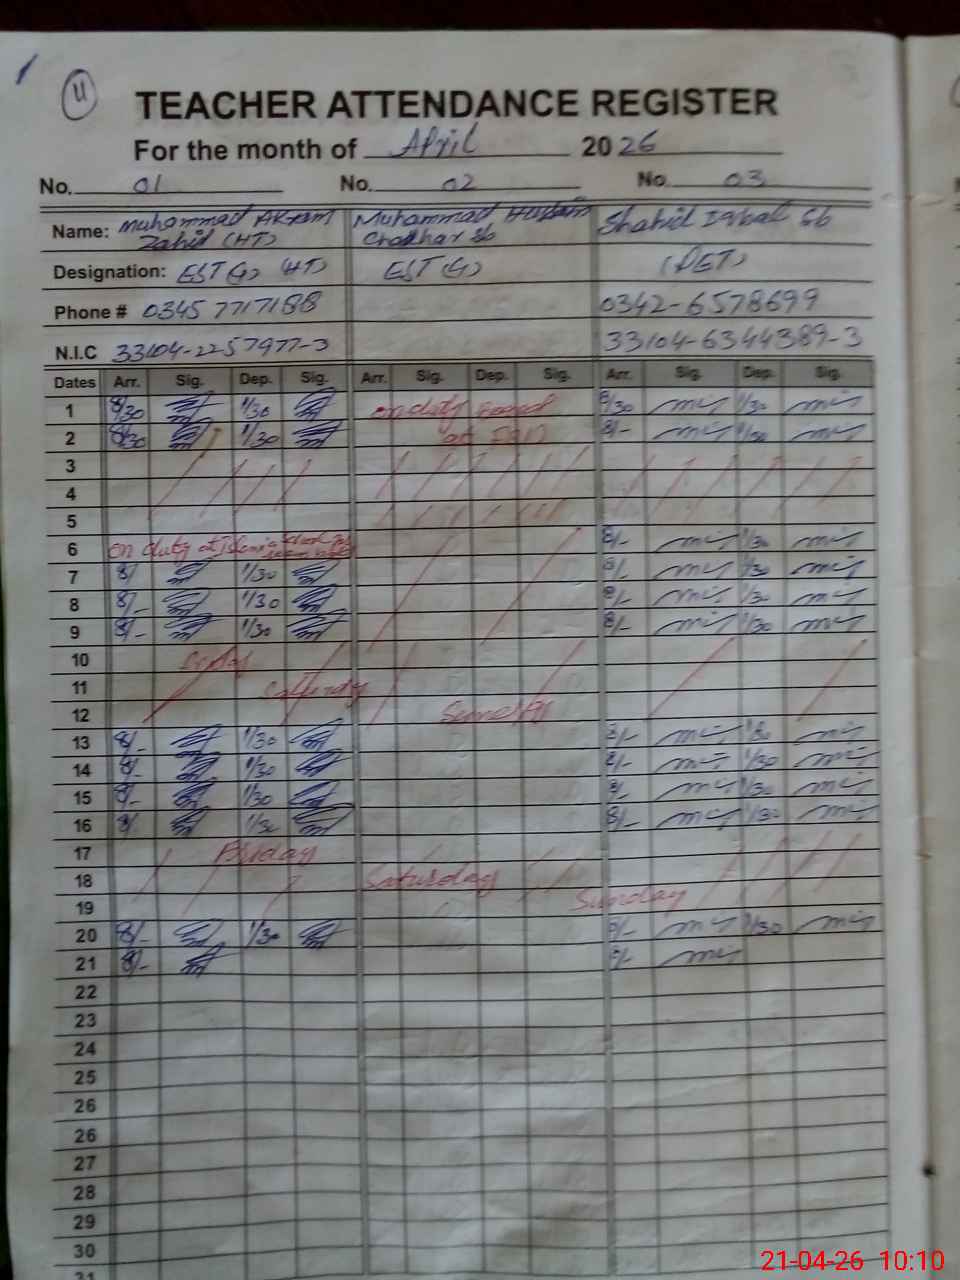 4
TEACHER ATTENDANCE REGISTER
For the month of April 2026
No. 01 No. 02 No. 03
Name: Muhammad Akram Zahid (HT) Muhammad Hussain Chadhar Sb Shahid Iqbal Sb
Designation: EST(G) (HT) EST(G) (PET)
Phone # 0345 7717188 0342-6578699
N.I.C 33104-2257977-3 33104-6344389-3
Dates Arr. Sig. Dep. Sig. Arr. Sig. Dep. Sig. Arr. Sig. Dep. Sig.
1 8/30 1/30 on duty 8/30 1/30
2 8/30 1/30 at 8/- 1/30
3
4
5
6 on duty at 8/- 1/30
7 8/ 1/30 8/- 1/30
8 8/- 1/30 8/- 1/30
9 8/- 1/30 8/- 1/30
10 Friday
11 Saturday
12 Sunday
13 8/- 1/30 8/- 1/30
14 8/- 1/30 8/- 1/30
15 8/- 1/30 8/- 1/30
16 8/ 1/30 8/- 1/30
17 Friday
18 Saturday
19 Sunday
20 8/- 1/30 8/- 1/30
21 8/- 8/-
22
23
24
25
26
26
27
28
29
30
31
21-04-26 10:10